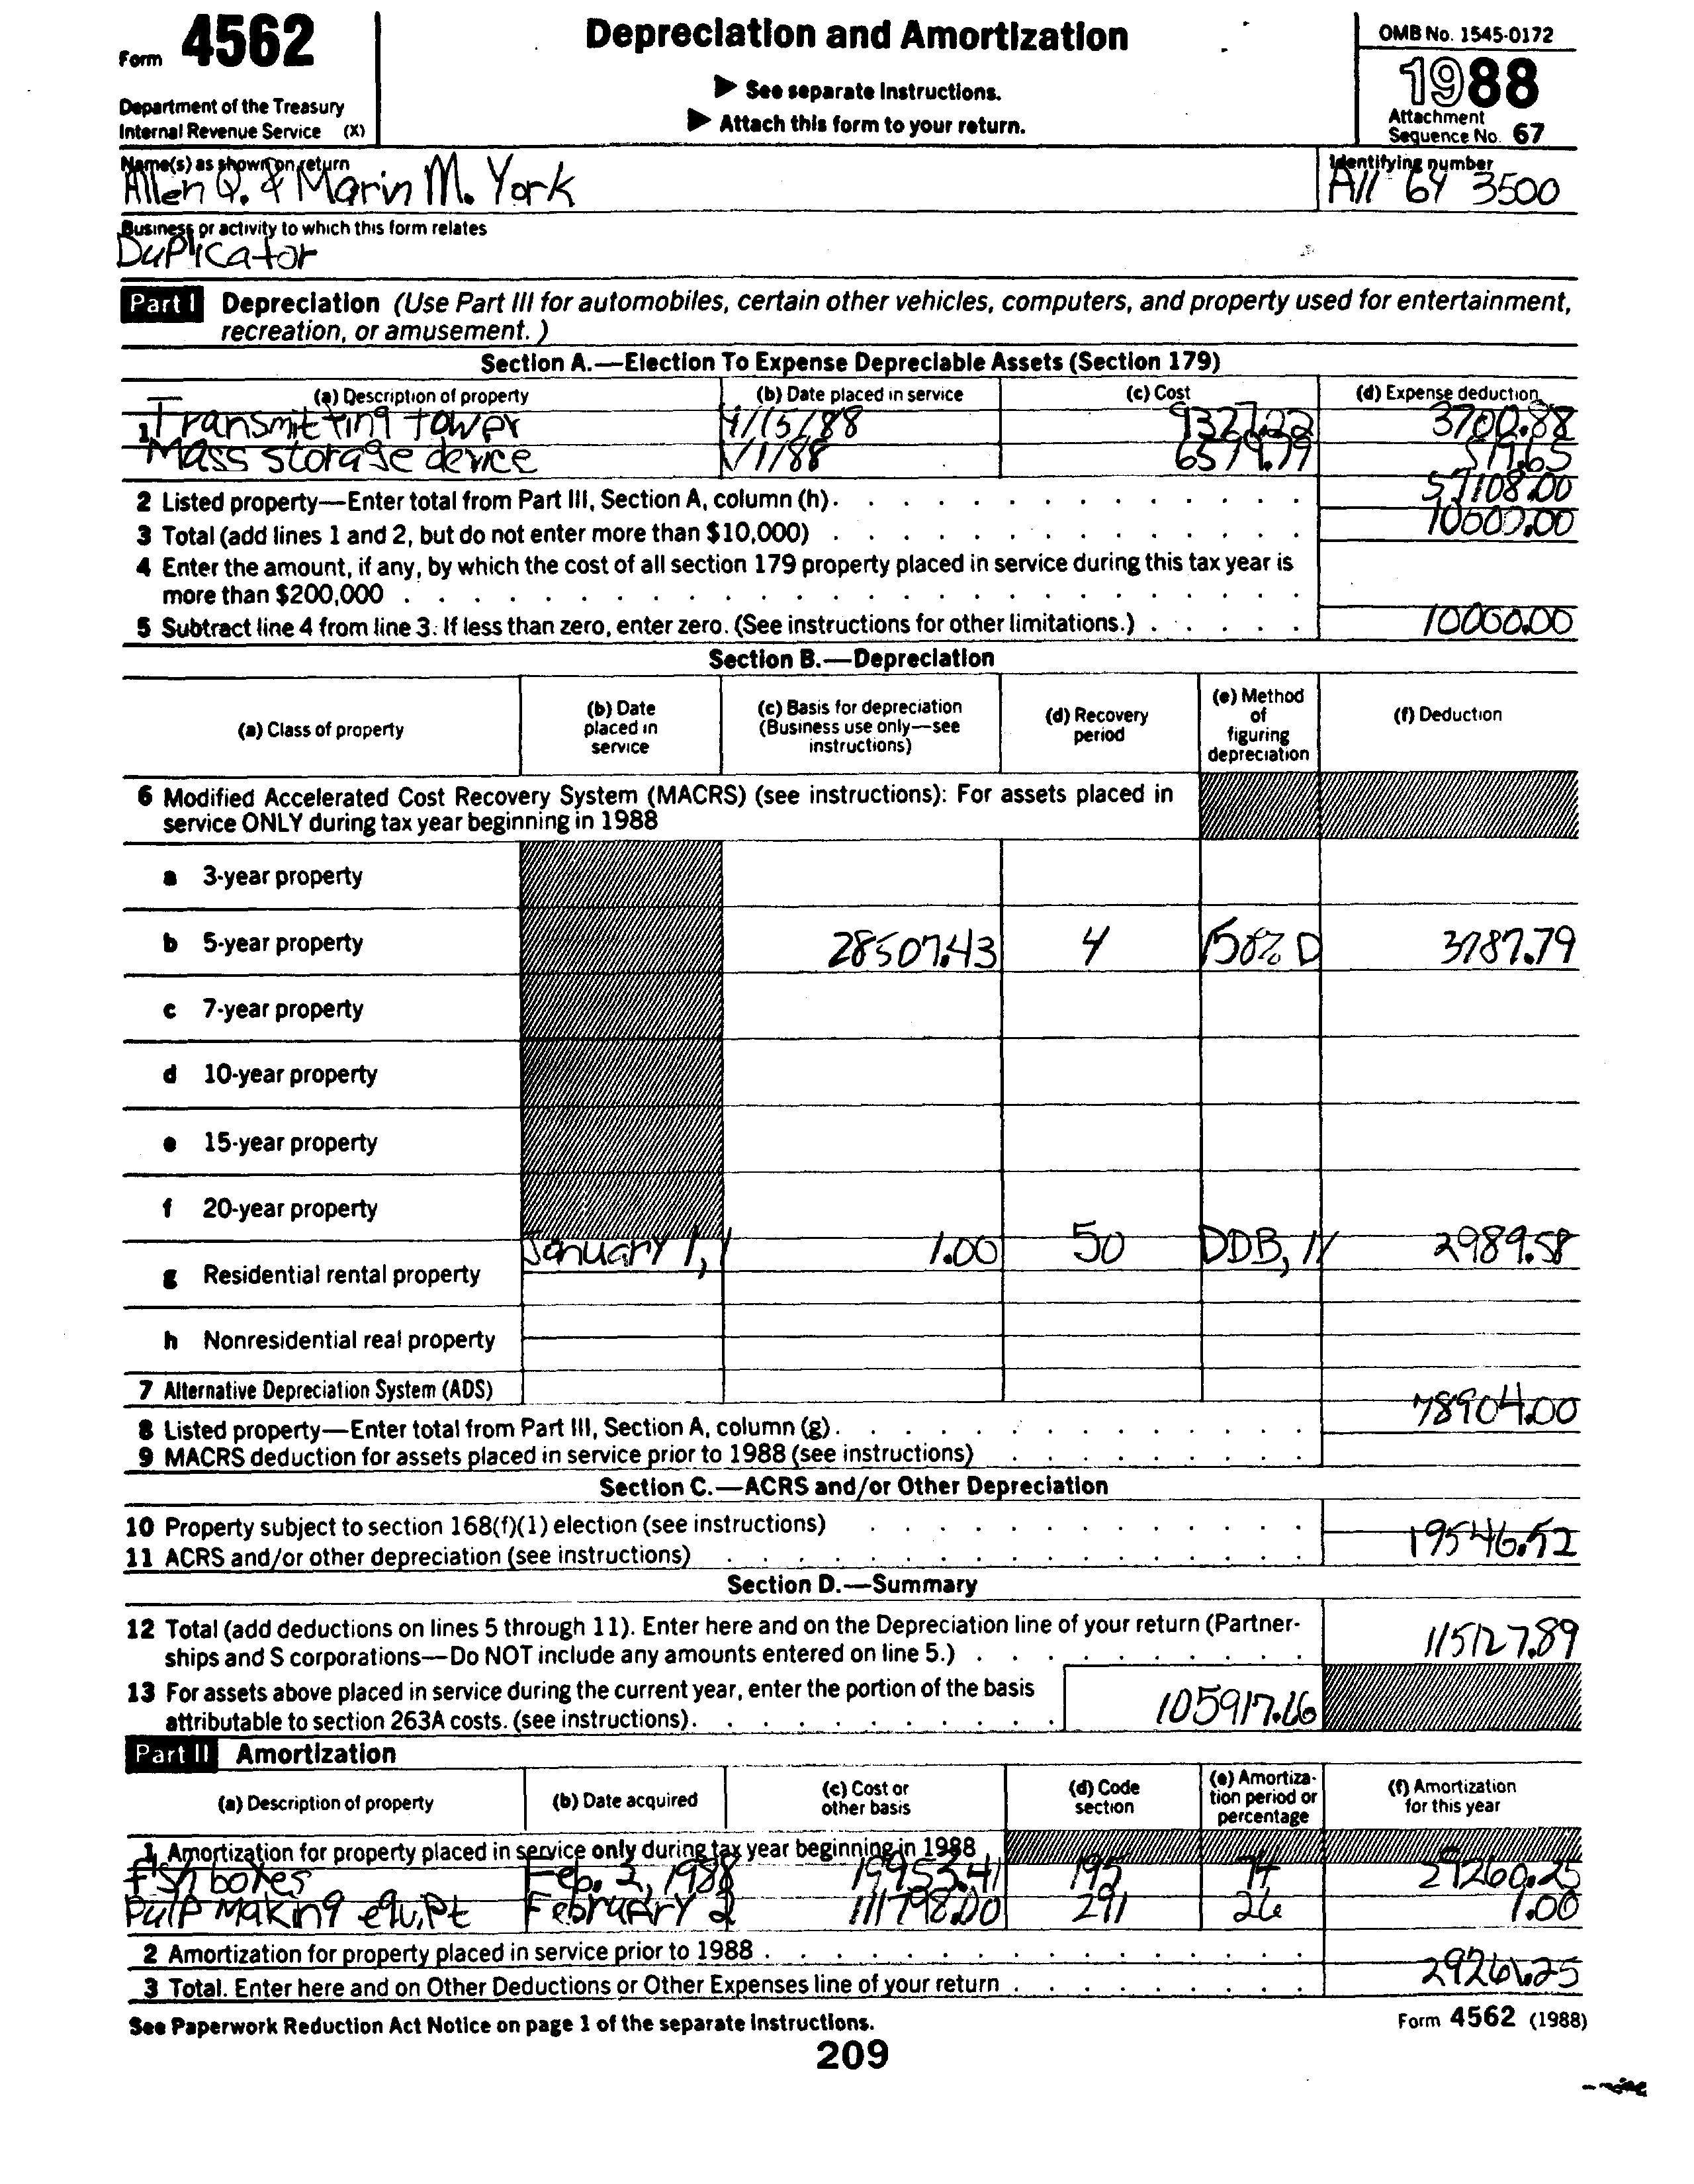 Form 4562
Department of the Treasury
Internal Revenue Service (X)
Depreciation and Amortization
▶ See separate instructions.
▶ Attach this form to your return.
OMB No. 1545-0172
1988
Attachment
Sequence No. 67
Name(s) as shown on return
Allen Q. & Marin M. York
Identifying number
All 64 3500
Business or activity to which this form relates
Duplicator
Part I Depreciation (Use Part III for automobiles, certain other vehicles, computers, and property used for entertainment,
recreation, or amusement.)
Section A.—Election To Expense Depreciable Assets (Section 179)
(a) Description of property (b) Date placed in service (c) Cost (d) Expense deduction
1 Transmitting tower 4/15/88 9327.22 3700.88
Mass storage device 1/1/88 6579.79 519.65
2 Listed property—Enter total from Part III, Section A, column (h). 57108.00
3 Total (add lines 1 and 2, but do not enter more than $10,000) 10000.00
4 Enter the amount, if any, by which the cost of all section 179 property placed in service during this tax year is
more than $200,000
5 Subtract line 4 from line 3. If less than zero, enter zero. (See instructions for other limitations.) 10000.00
Section B.—Depreciation
(a) Class of property
(b) Date
placed in
service
(c) Basis for depreciation
(Business use only—see
instructions)
(d) Recovery
period
(e) Method
of
figuring
depreciation
(f) Deduction
6 Modified Accelerated Cost Recovery System (MACRS) (see instructions): For assets placed in
service ONLY during tax year beginning in 1988
a 3-year property
b 5-year property 28507.43 4 150% D 3787.79
c 7-year property
d 10-year property
e 15-year property
f 20-year property
January 1, 1 1.00 50 DDB, 1/ 2989.58
g Residential rental property
h Nonresidential real property
7 Alternative Depreciation System (ADS)
8 Listed property—Enter total from Part III, Section A, column (g). 78904.00
9 MACRS deduction for assets placed in service prior to 1988 (see instructions)
Section C.—ACRS and/or Other Depreciation
10 Property subject to section 168(f)(1) election (see instructions)
11 ACRS and/or other depreciation (see instructions) 19546.52
Section D.—Summary
12 Total (add deductions on lines 5 through 11). Enter here and on the Depreciation line of your return (Partner-
ships and S corporations—Do NOT include any amounts entered on line 5.) 115127.89
13 For assets above placed in service during the current year, enter the portion of the basis
attributable to section 263A costs. (see instructions). 105917.16
Part II Amortization
(a) Description of property
(b) Date acquired
(c) Cost or
other basis
(d) Code
section
(e) Amortiza-
tion period or
percentage
(f) Amortization
for this year
1 Amortization for property placed in service only during tax year beginning in 1988
fish boxes Feb. 2, 1988 19953.41 195 74 29260.25
Pulp Making equipt February 2 111798.00 291 26 1.00
2 Amortization for property placed in service prior to 1988
3 Total. Enter here and on Other Deductions or Other Expenses line of your return 29261.25
See Paperwork Reduction Act Notice on page 1 of the separate instructions.
Form 4562 (1988)
209